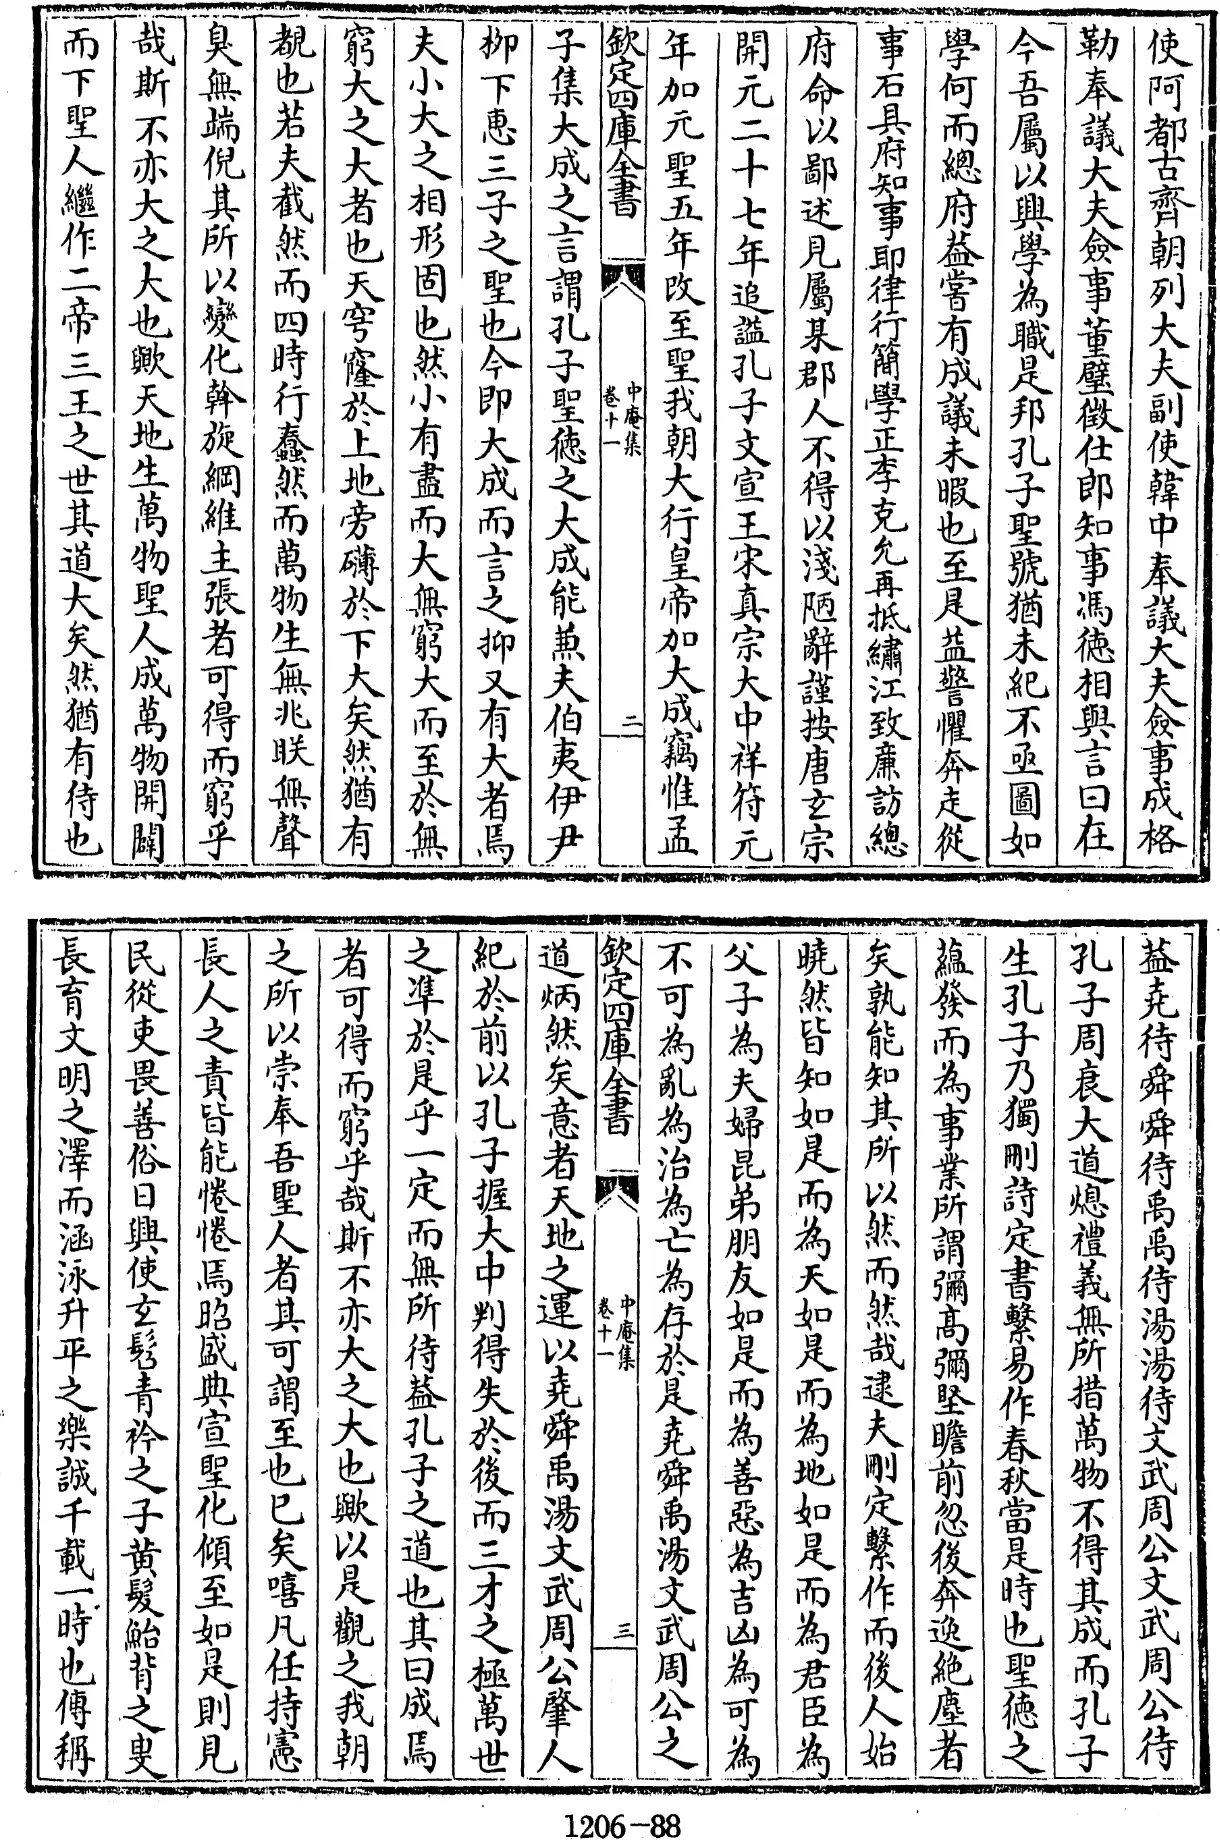 使阿都古齊朝列大夫副使韓中奉議大夫僉事成格
勒奉議大夫僉事董璧徵仕郎知事馮徳相與言曰在
今吾屬以興學為職是邦孔子聖號猶未紀不亟圖如
學何而總府益嘗有成議未暇也至是益警懼奔走從
事石具府知事耶律行簡學正李克允再抵繡江致廉訪總
府命以鄙述見屬某郡人不得以淺陋辭謹按唐玄宗
開元二十七年追諡孔子文宣王宋真宗大中祥符元
年加元聖五年改至聖我朝大行皇帝加大成竊惟孟
欽定四庫全書
中庵集
卷十一
二
子集大成之言謂孔子聖徳之大成能兼夫伯夷伊尹
柳下惠三子之聖也今即大成而言之抑又有大者焉
夫小大之相形固也然小有盡而大無窮大而至於無
窮大之大者也天穹窿於上地旁礴於下大矣然猶有
覩也若夫截然而四時行蠢然而萬物生無兆朕無聲
臭無端倪其所以變化斡旋綱維主張者可得而窮乎
哉斯不亦大之大也歟天地生萬物聖人成萬物開闢
而下聖人繼作二帝三王之世其道大矣然猶有待也
葢堯待舜舜待禹禹待湯湯待文武周公文武周公待
孔子周衰大道熄禮義無所措萬物不得其成而孔子
生孔子乃獨刪詩定書繫易作春秋當是時也聖徳之
蘊發而為事業所謂彌髙彌堅瞻前忽後奔逸絶塵者
矣孰能知其所以然而然哉逮夫刪定繫作而後人始
曉然皆知如是而為天如是而為地如是而為君臣為
父子為夫婦昆弟朋友如是而為善惡為吉凶為可為
不可為亂為治為亡為存於是堯舜禹湯文武周公之
欽定四庫全書
中庵集
卷十一
三
道炳然矣意者天地之運以堯舜禹湯文武周公肇人
紀於前以孔子握大中判得失於後而三才之極萬世
之凖於是乎一定而無所待葢孔子之道也其曰成焉
者可得而窮乎哉斯不亦大之大也歟以是觀之我朝
之所以崇奉吾聖人者其可謂至也已矣嘻凡任持憲
長人之責皆能惓惓焉昭盛典宣聖化傾至如是則見
民從吏畏善俗日興使玄髫青衿之子黄髮鮐背之叟
長育文明之澤而涵泳升平之樂誠千載一時也傳稱
1206-88